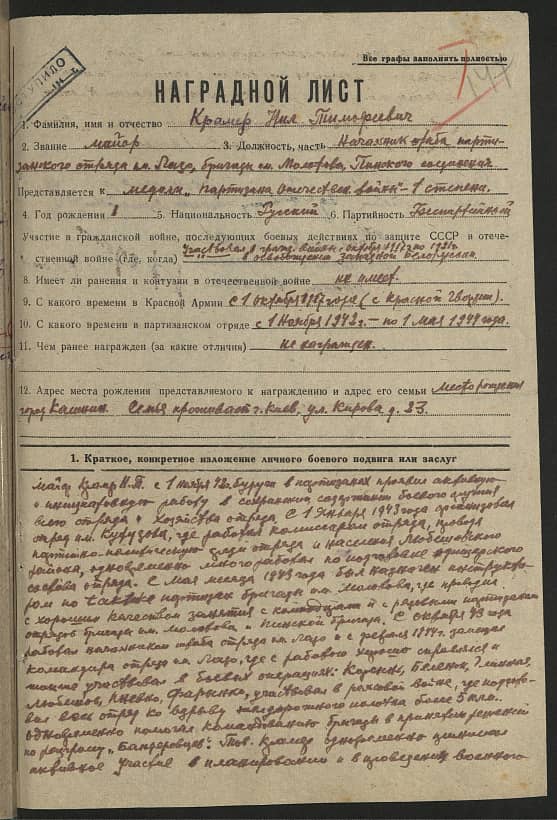 СТУПИЛО
Все графы заполнять полностью
НАГРАДНОЙ ЛИСТ
1. Фамилия, имя и отчество Крамер Нил Тимофеевич
2. Звание майор 3. Должность, часть Начальник штаба парти-
занского отряда им. Лазо, бригады им. Молотова, Пинского соединения
Представляется к медали "партизана отечествен войны" 1 степени.
4. Год рождения 5. Национальность Русский 6. Партийность Беспартийный
Участие в гражданской войне, последующих боевых действиях по защите СССР и отече-
ственной войне (где, когда) Участвовал в гражд. войны октября 1917 по 1921г.
в освобождении западной Белоруссии.
8. Имеет ли ранения и контузии в отечественной войне не имеет.
9. С какого времени в Красной Армии с 1 октября 1917 года (с Красной Гвардии).
10. С какого времени в партизанском отряде с 1 Ноября 1942 г. — по 1 мая 1944 года.
11. Чем ранее награжден (за какие отличия) не награжден.
12. Адрес места рождения представляемого к награждению и адрес его семьи Место рождения
город Калинин. Семья проживает г. Киев, ул. Кирова д. 33
1. Краткое, конкретное изложение личного боевого подвига или заслуг
Майор Крамер Н.Т. с 1 ноября 42г. будучи в партизанах проявил активную
и инициативную работу в сохранении боевого
отряда и хозяйства отряда. С 1 Января 1943 года организовал
отряд им. Кутузова, где работал комиссаром отряда, проводя
партийно-политическую среди отряда и населения Любешовского
района, одновременно много работал по подготовке офицерского
состава отряда. С Мая месяца 1943 года был назначен инструкто-
ром по тактике партизан бригады им. Молотова, где проводил
с хорошим качеством занятия с командирами и с рядовыми партизанами
отрядов бригады им. Молотова и Пинской бригады. С октября 43 года
работал начальником штаба отряда им. Лазо и с февраля 1944г. замещал
командира отряда им. Лазо, где с работой хорошо справлялся и
участвовал в боевых операциях:
Любешов, участвовал в рельсовой войне, где подгото-
вил весь отряд ко взрыву железнодорожного полотна более 5 клм.
Одновременно помогал командованию бригады в принятии решений
по разгрому "Бандеровцев". Тов. Крамер одновременно принимал
активное участие в планировании и в проведении военного